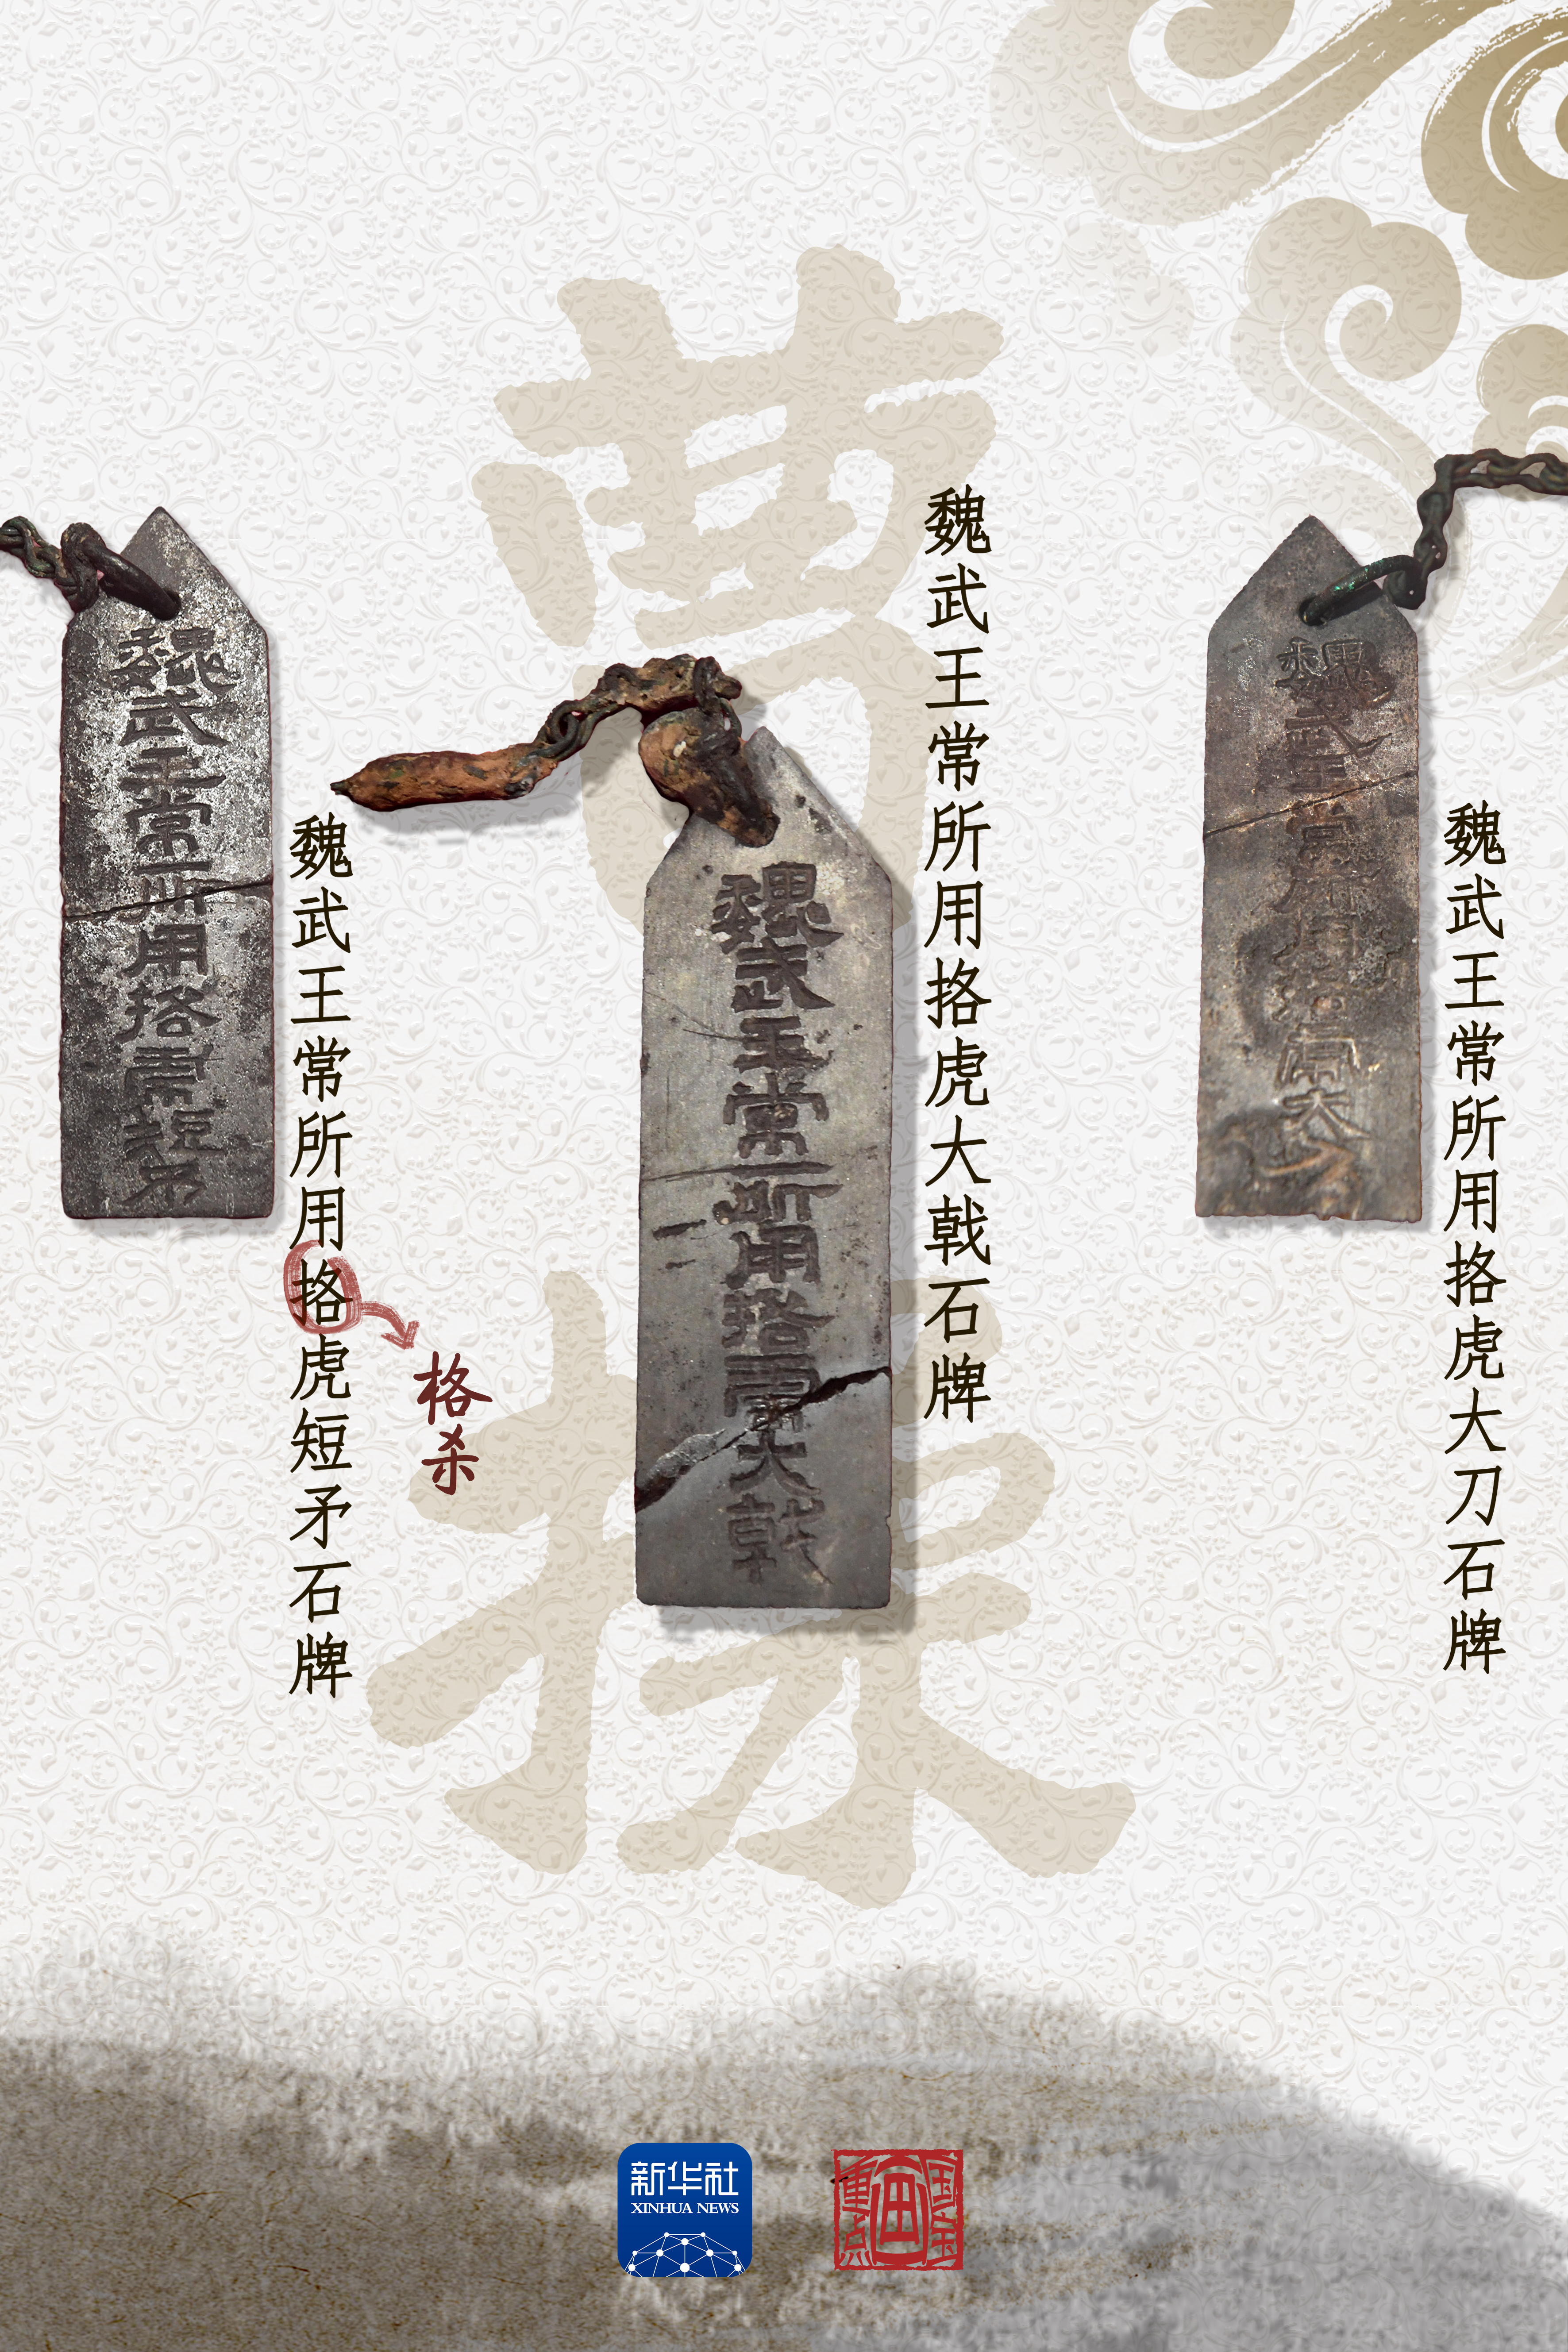 曹操
魏武王常所用挌虎短矛
魏武王常所用挌虎短矛石牌
格杀
魏武王常所用挌虎大戟
魏武王常所用挌虎大戟石牌
魏武王常所用挌虎大刀
魏武王常所用挌虎大刀石牌
新华社
XINHUA NEWS
国宝
画
重点